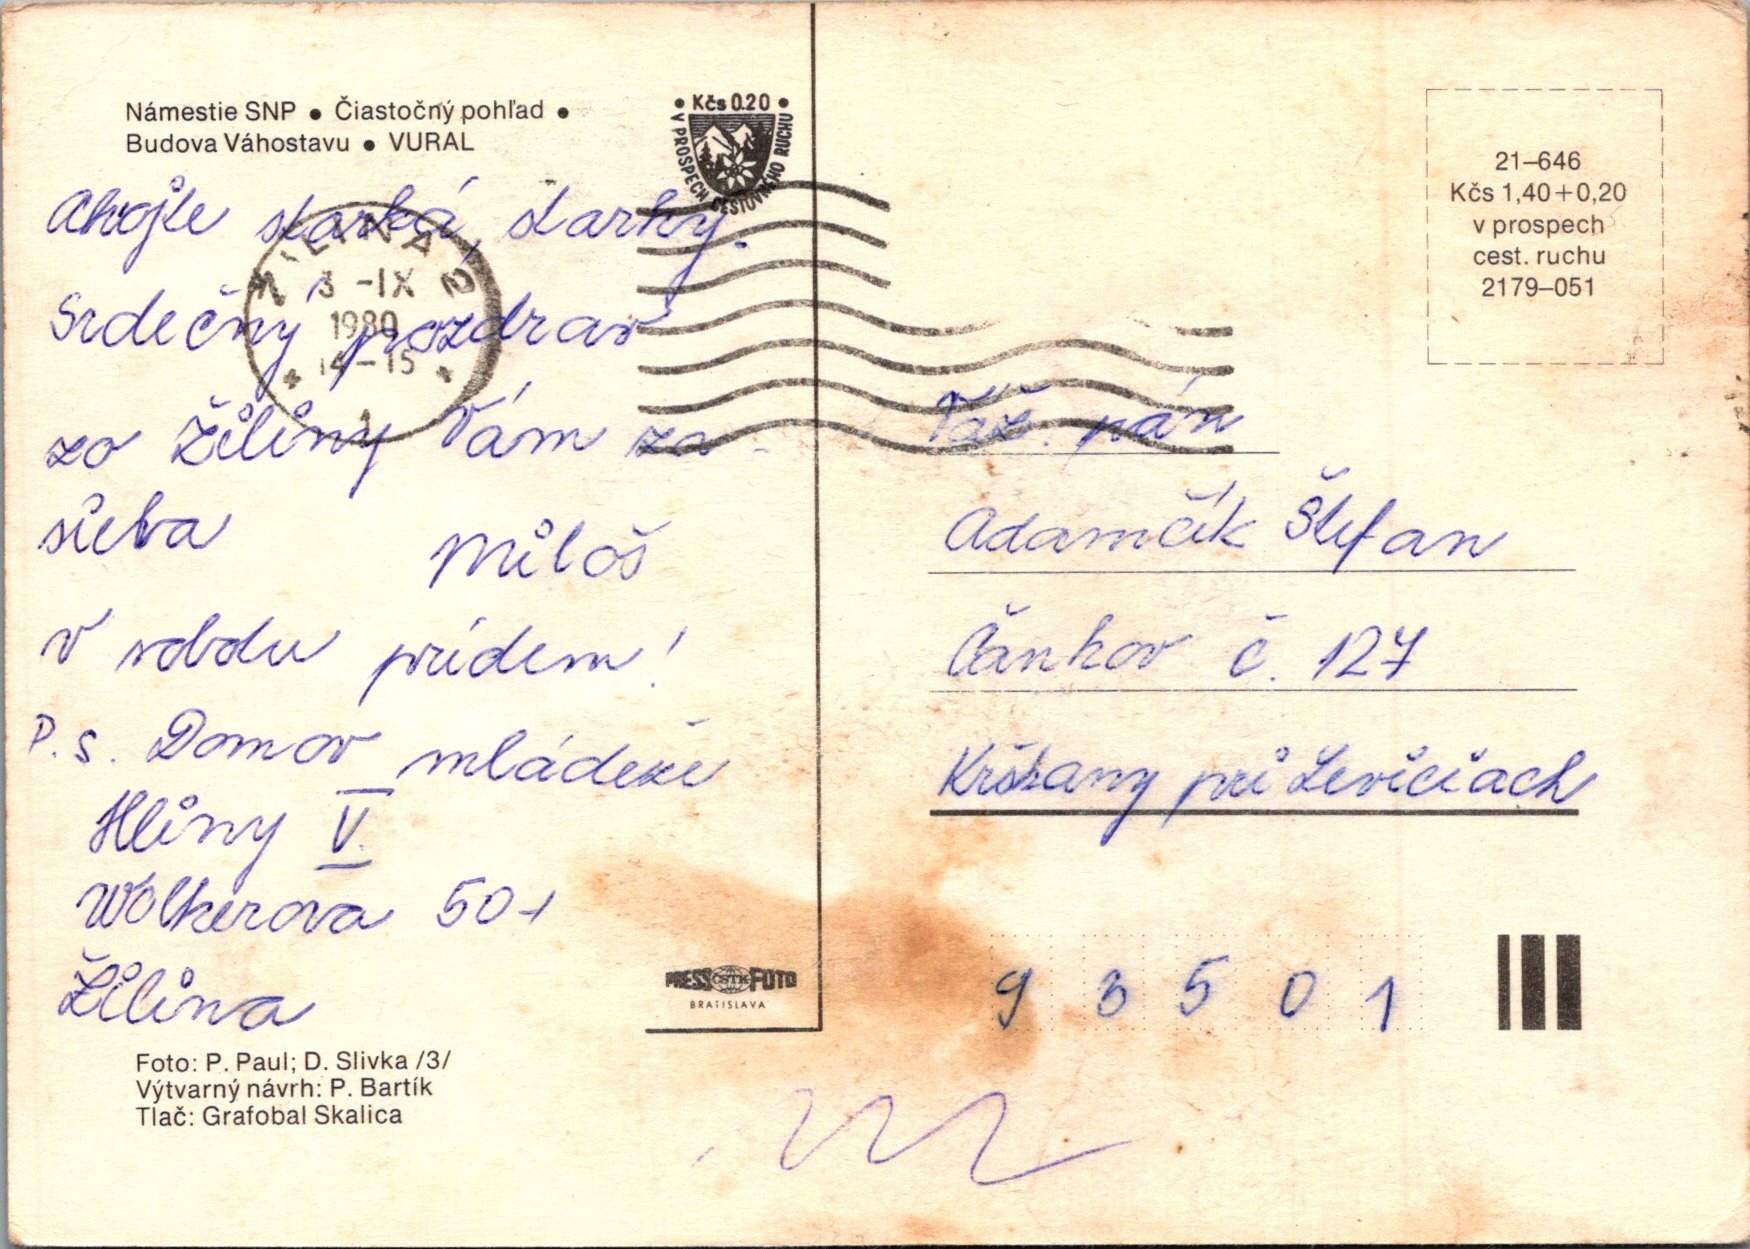 Námestie SNP ● Čiastočný pohľad ●
Budova Váhostavu ● VURAL
• Kčs 0.20 •
V PROSPECH CESTOVNÉHO RUCHU
ŽILINA 2
3 -IX
1980
14-15
1
Ahojte starká, starký.
Srdečný pozdrav
zo Žiliny Vám za-
siela
Miloš
V sobotu prídem!
P.s. Domov mládeže
Hliny V.
Wolkerova
Žilina
Foto: P. Paul; D. Slivka /3/
Výtvarný návrh: P. Bartík
Tlač: Grafobal Skalica
PRESS ČSTK FOTO
BRATISLAVA
21–646
Kčs 1,40+0,20
v prospech
cest. ruchu
2179–051
Váž. pán
Adamčík Štefan
Čankov č. 127
Kršťany pri Leviciach
93501